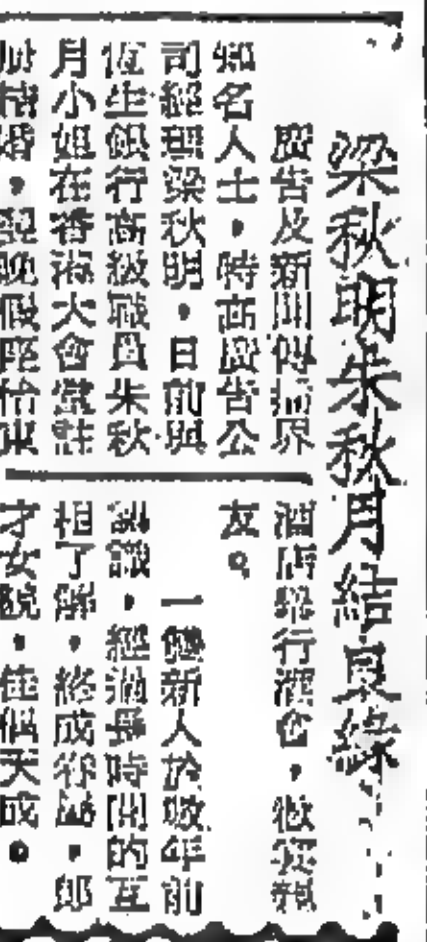 梁秋明朱秋月結良緣
廣告及新聞傳播界
知名人士,特高廣告公
司經理梁秋明,日前與
恆生銀行高級職員朱秋
月小姐在香港大會堂註
冊結婚,翌晚假座怡東
酒店舉行讌會,歡宴親
友。
一雙新人於數年前
認識,經過長時間的互
相了解,終成眷屬,郎
才女貌,佳偶天成。